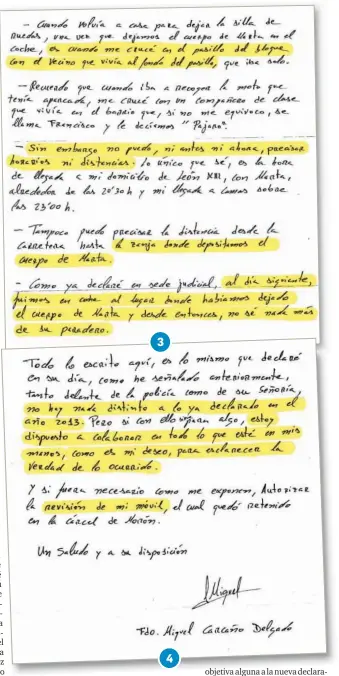 - Cuando volvía a casa para dejar la silla de
ruedas, una vez que dejamos el cuerpo de Marta en el
coche, es cuando me crucé en el pasillo del bloque
con el vecino que vivía al fondo del pasillo, que iba solo.
- Recuerdo que cuando iba a recoger la moto que
tenía aparcada, me crucé con un compañero de clase
que vivía en el barrio que, si no me equivoco, se
llama Francisco y le decíamos "Pájaro".
- Sin embargo no puedo, ni antes ni ahora, precisar
horarios ni distancias. Lo único que sé, es la hora
de llegada a mi domicilio de León XIII, con Marta,
alrededor de las 20'30 h y mi llegada a Camas sobre
las 23'00 h.
- Tampoco puedo precisar la distancia desde la
carretera hasta la zanja donde depositamos el
cuerpo de Marta.
- Como ya declaré en sede judicial, al día siguiente,
fuimos en coche al lugar donde habíamos dejado
el cuerpo de Marta y desde entonces, no sé nada más
de su paradero.
3
Todo lo escrito aquí, es lo mismo que declaré
en su día, como he señalado anteriormente,
tanto delante de la policía como de su Señoría,
no hay nada distinto a lo ya declarado en el
año 2013. Pero si con ello vieran algo, estoy
dispuesto a colaborar en todo lo que esté en mis
manos, como es mi deseo, para esclarecer la
verdad de lo ocurrido.
Y si fuera necesario como me exponen, Autorizar
la revisión de mi móvil, el cual quedó retenido
en la cárcel de Morón.
Un Saludo y a su disposición
Miguel
Fdo. Miguel Carcaño Delgado
4
objetiva alguna a la nueva declara-